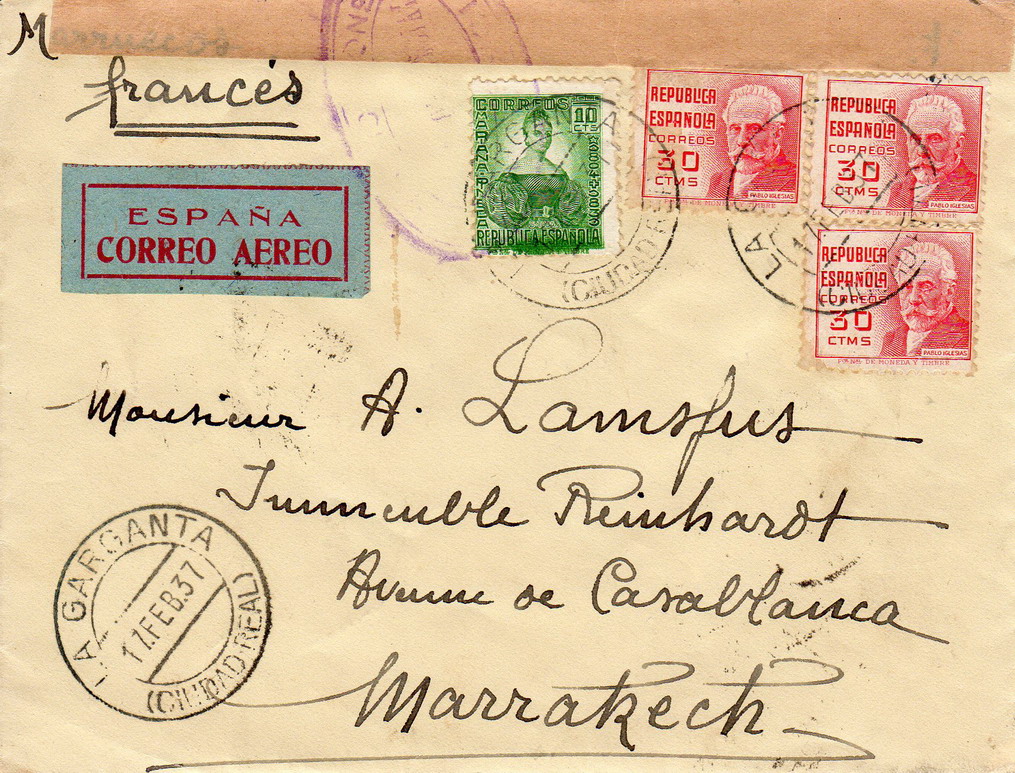 Marruecos
francés
ESPAÑA
CORREO AEREO
CORREOS
10
CTS
MARIANA PINEDA
REPUBLICA ESPAÑOLA
REPUBLICA
ESPAÑOLA
CORREOS
30
CTMS
PABLO IGLESIAS
REPUBLICA
ESPAÑOLA
CORREOS
30
CTMS
PABLO IGLESIAS
DE MONEDA Y TIMBRE
REPUBLICA
ESPAÑOLA
CORREOS
30
CTMS
PABLO IGLESIAS
DE MONEDA Y TIMBRE
(CIUDAD REAL)
Monsieur A. Lamsfus
Immeuble Reinhardt
Avenue de Casablanca
Marrakech
LA GARGANTA
17.FEB.37
(CIUDAD REAL)